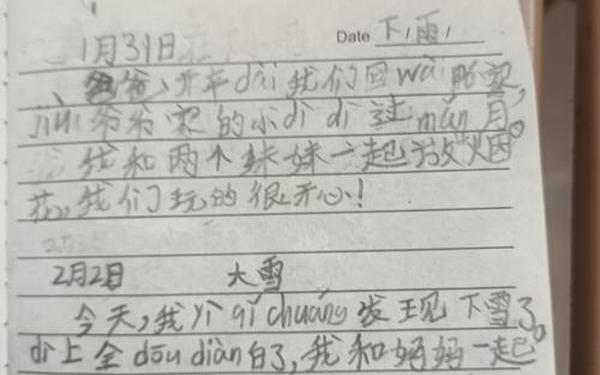 1月31日 Date 下雨
爸爸开车dài我们回wài那家,
jiù爷爷家的小dì dì过mǎn月。
我和两个妹妹一起放烟
花,我们玩的很开心!
2月2日 大雪
今天,我yì qǐ chuáng发现下雪了。
dì上全dōu diàn白了,我和妈妈一起